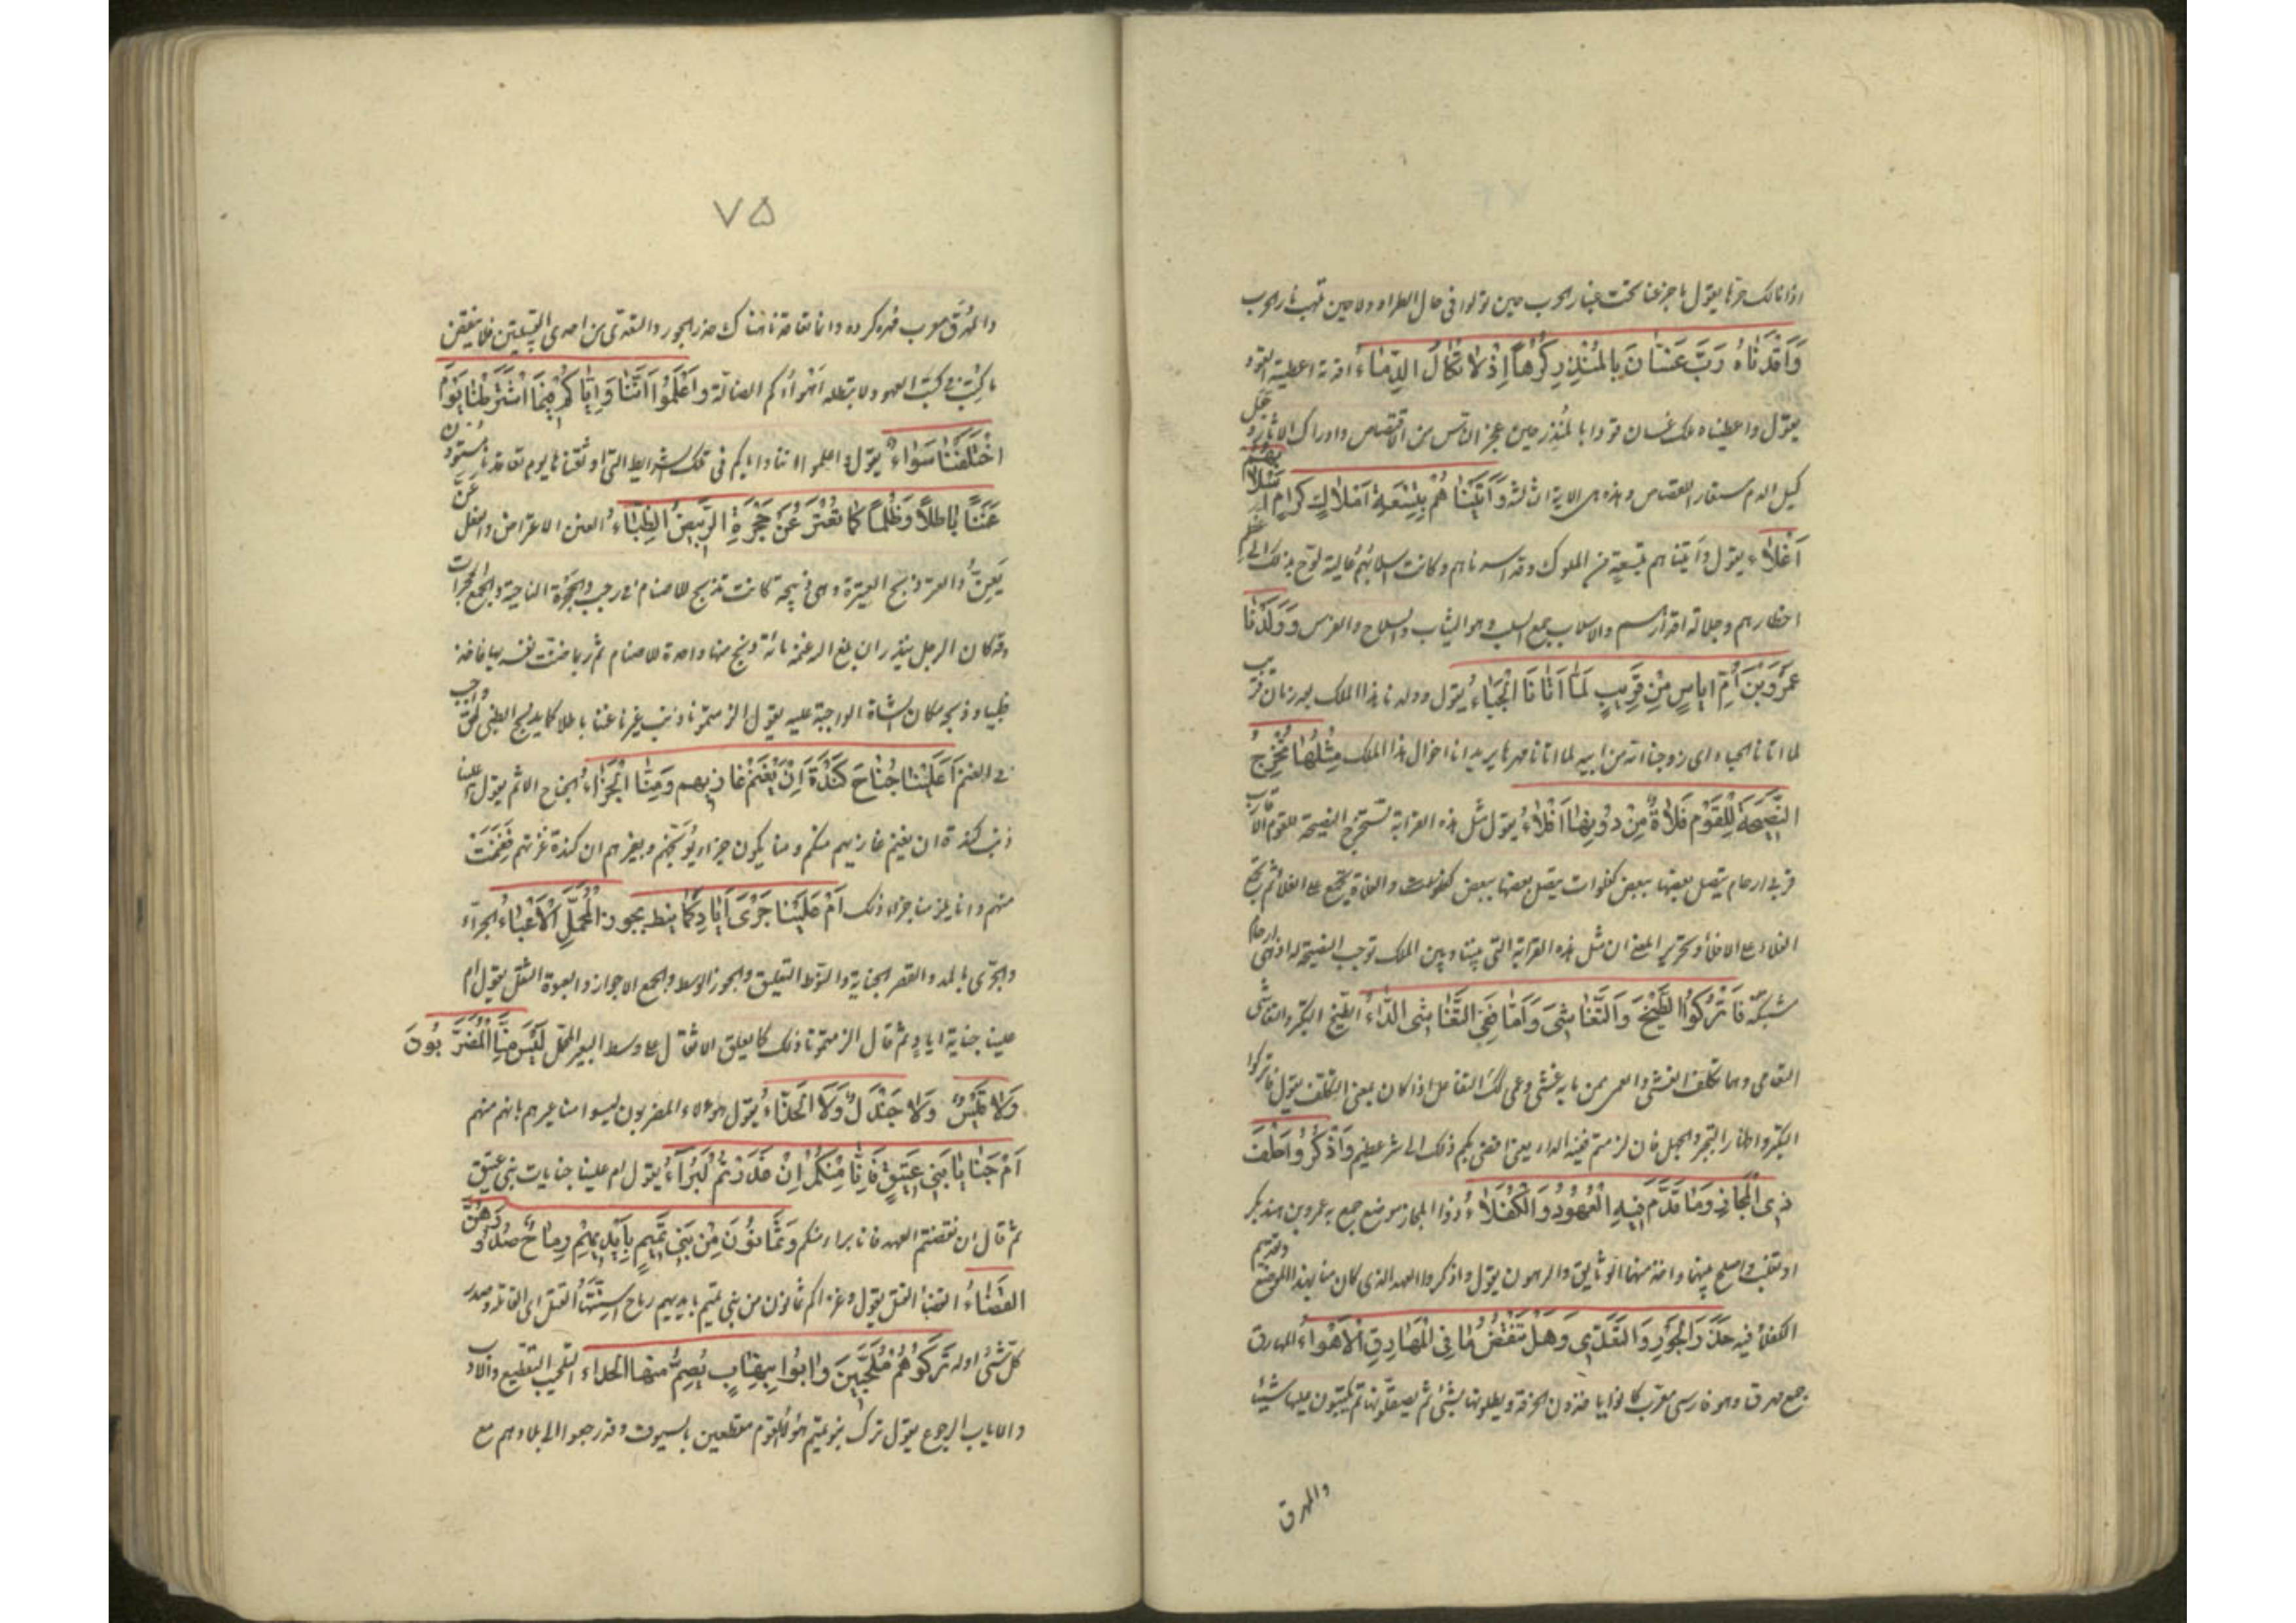 اذا نالك حرها يقول ما جزعنا تحت غبار الحرب حين تولوا فى حال الطراد ولا حين تلهب نار الحرب
وَاَقَدْنَاهُ رَبَّ غَسَّانَ بِالْمُنْذِرِ كَرْهًا اِذْ لَا تُكَالُ الدِّمَاءُ اقدته اعطيته القود
يقول واعطيناه ملك غسان قودا بالمنذر حين عجز الناس من الاقتصاص وادراك الاثار و
كيل الدم مستعار للقصاص وهذه هى الاية الثالثة وَاَتَيْنَاهُمْ بِتِسْعَةِ اَمْلَاكٍ كِرَامٍ اسلابهم
اَغْلَاءُ يقول واتيناهم بتسعة من الملوك وقد اسرناهم وكانت اسلابهم غالية
اخطارهم وجلالة اقدارهم والاسلاب جمع السلب وهو الثياب والسلاح والفرس وَوَلَدْنَا
عَمْرَو بْنَ اُمِّ اِيَاسٍ مِنْ قَرِيبٍ لَمَّا اَتَانَا الْحِبَاءُ يقول وولدنا هذا الملك بعد زمان قريب
لما اتانا الحباء اى زوجنا امه من ابيه لما اتانا مهرها يريد انا اخوال هذا الملك مِثْلُهَا تُخْرِجُ
النَّصِيحَةَ لِلْقَوْمِ فَلَاةٌ مِنْ دُونِهَا اَفْلَاءُ يقول مثل هذه القرابة تستخرج النصيحة للقوم الاقارب
قربى ارحام يتصل بعضها ببعض كفلوات يتصل بعضها ببعض
الفلاء على الافلاء وتحرير المعنى ان مثل هذه القرابة التى بيننا وبين الملك توجب النصيحة له اذ هى ارحام
مشتبكة فَاتْرُكُوا الطَّيْخَ وَالتَّعَاشِى وَاِمَّا تَتَعَاشَوْا فَفِى التَّعَاشِى الدَّاءُ الطيخ التكبر والتعاشى
التعامى وهما تكلف العشى والعمى ممن ما به عشى وعمى وكذلك التفاعل اذا كان بمعنى التكلف يقول فاتركوا
التكبر واظهار التجبر والجهل فان لزمتم ففيه الداء يعنى افضى بكم ذلك الى شر عظيم وَاذْكُرُوا حِلْفَ
ذِى الْمَجَازِ وَمَا قُدِّمَ فِيهِ الْعُهُودُ وَالْكُفَلَاءُ ذو المجاز موضع جمع به عمرو بن هند بكر
او تغلب واصلح بينهما واخذ منهما الوثايق والرهون يقول واذكروا العهد الذى كان منا بهذا الموضع وتقديم
الكفلاء فيه حَذَرَ الْجَوْرِ وَالتَّعَدِّى وَهَلْ تَنْقُضُ مَا فِى الْمَهَارِقِ الْاَهْوَاءُ المهارق
جمع مهرق وهو فارسى معرب كانوا ياخذون الخرقة ويطلونها بشئ ثم يصقلونها ثم يكتبون عليها شيئا
والمهرق
٧۵
والمهرق معرب مهره كرده وانما تعاقدنا هناك حذر الجور والتعدى من احدى القبيلتين فلا ينقض
ما كتب فى كتب العهود ولا تبطله اهواءكم الضالة وَاعْلَمُوا اَنَّنَا وَاِيَّاكُمْ فِيمَا اشْتَرَطْنَا يَوْمَ
اخْتَلَفْنَا سَوَاءُ يقول واعلموا اننا واياكم فى تلك الشرايط التى اوثقناها يوم تعاقدنا مستوون
عَنَنًا بَاطِلًا وَظُلْمًا كَمَا تُعْتَرُ عَنْ حَجْرَةِ الرَّبِيضِ الظِّبَاءُ العنن الاعتراض والفعل عن
يعن والعتر ذبح العتيرة وهى ذبيحة كانت تذبح للاصنام فى رجب والحجرة الناحية والجمع الحجرات
وقد كان الرجل ينذر ان بلغ الله غنمه مائة ذبح منها واحدة للاصنام ثم ربما ضنت نفسه بها فاخذ
ظبيا وذبحه مكان الشاة الواجبة عليه يقول الزمتمونا ذنب غيرنا عننا باطلا كما يذبح الظبى لحق واجب
فى الغنم اَعَلَيْنَا جُنَاحُ كِنْدَةَ اَنْ يَغْنَمَ غَازِيهِمْ وَمِنَّا الْجَزَاءُ الجناح الاثم يقول اعلينا
ذنب كندة ان يغنم غازيهم منكم ومنا يكون جزاء ذلك يوبخهم ويعيرهم ان كندة غزتهم فغنمت
منهم وانا يلزمنا جزاء ذلك اَمْ عَلَيْنَا جَرَّى اِيَادٍ كَمَا نِيطَ بِجَوْزِ الْمُحَمَّلِ الْاَعْبَاءُ الجراء
والجرى بالمد والقصر الجناية والنوط التعليق والجوز الوسط والجمع الاجواز والعبء الثقل يقول ام
علينا جناية اياد ثم قال الزمتمونا ذلك كما يعلق الاثقال على وسط البعير المحمل لَيْسَ مِنَّا الْمُضَرَّبُونَ
وَلَا قَيْسٌ وَلَا جَنْدَلٌ وَلَا الْحَدَّاءُ يقول هؤلاء المضربون ليسوا منا عيرهم بانهم منهم
اَمْ جَنَايَا بَنِى عَتِيقٍ فَاِنَّا مِنْكُمْ اِنْ غَدَرْتُمْ لَبُرَآءُ يقول ام علينا جنايات بنى عتيق
ثم قال ان نقضتم العهد فانا براء منكم وَثَمَانُونَ مِنْ بَنِى تَمِيمٍ بِاَيْدِيهِمْ رِمَاحٌ صُدُورُهُنَّ
الْقَضَاءُ القضاء القتل يقول وغزاكم ثمانون من بنى تميم بايديهم رماح اسنتها القتل اى القاتلة وصدر
كل شئ اوله تَرَكُوهُمْ مُلَحَّبِينَ وَاٰبُوا بِنِهَابٍ يُصِمُّ مِنْهَا الْحُدَاءُ التلحيب التقطيع والاوب
والاياب الرجوع يقول تركت بنو تميم هؤلاء القوم مقطعين بالسيوف وقد رجعوا الى بلادهم مع